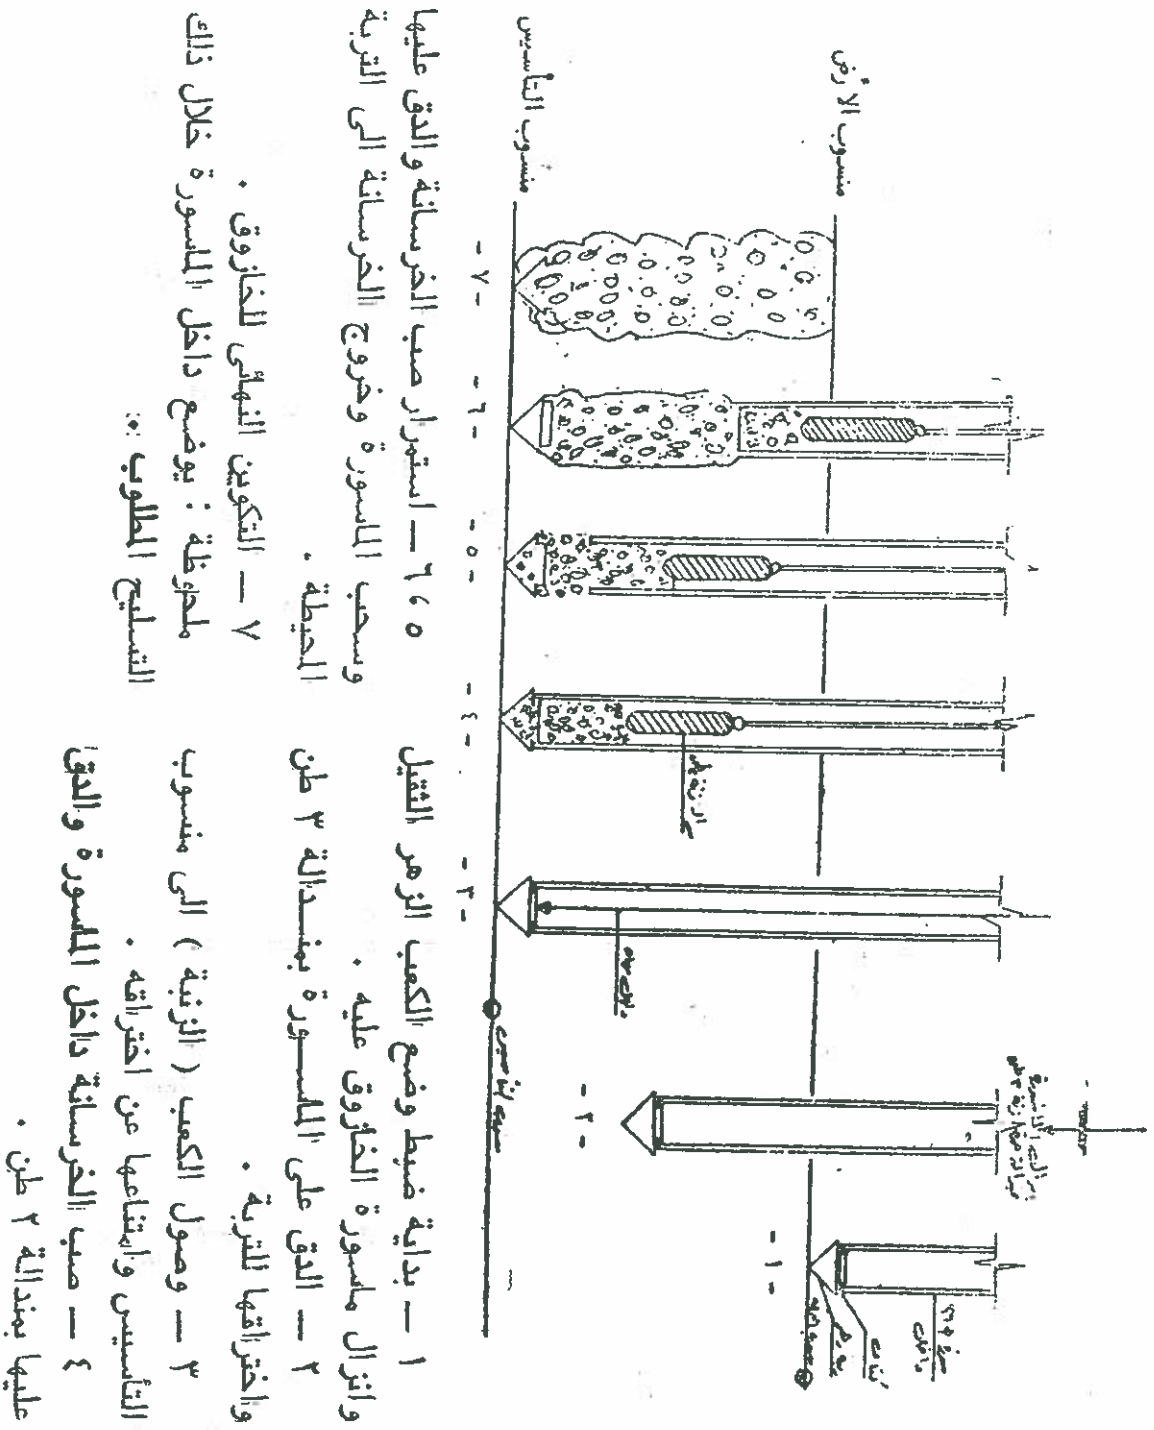 منسوب الأرض
منسوب التأسيس
- ١ -
- ٢ -
- ٣ -
- ٤ -
- ٥ -
- ٦ -
- ٧ -
١ — بداية ضبط وضع الكعب الزهر الثقيل
وانزال ماسورة الخازوق عليه .
٢ — الدق على الماسورة بمندالة ٣ طن
واختراقها للتربة .
٣ — وصول الكعب ( الزنبة ) الى منسوب
التأسيس وامتناعها عن اختراقه .
٤ — صب الخرسانة داخل الماسورة والدق
عليها بمندالة ٢ طن .
٥ ، ٦ — استمرار صب الخرسانة والدق عليها
وسحب الماسورة وخروج الخرسانة الى التربة
المحيطة .
٧ — التكوين النهائى للخازوق .
ملحوظة : يوضع داخل الماسورة خلال ذلك
التسليح المطلوب .